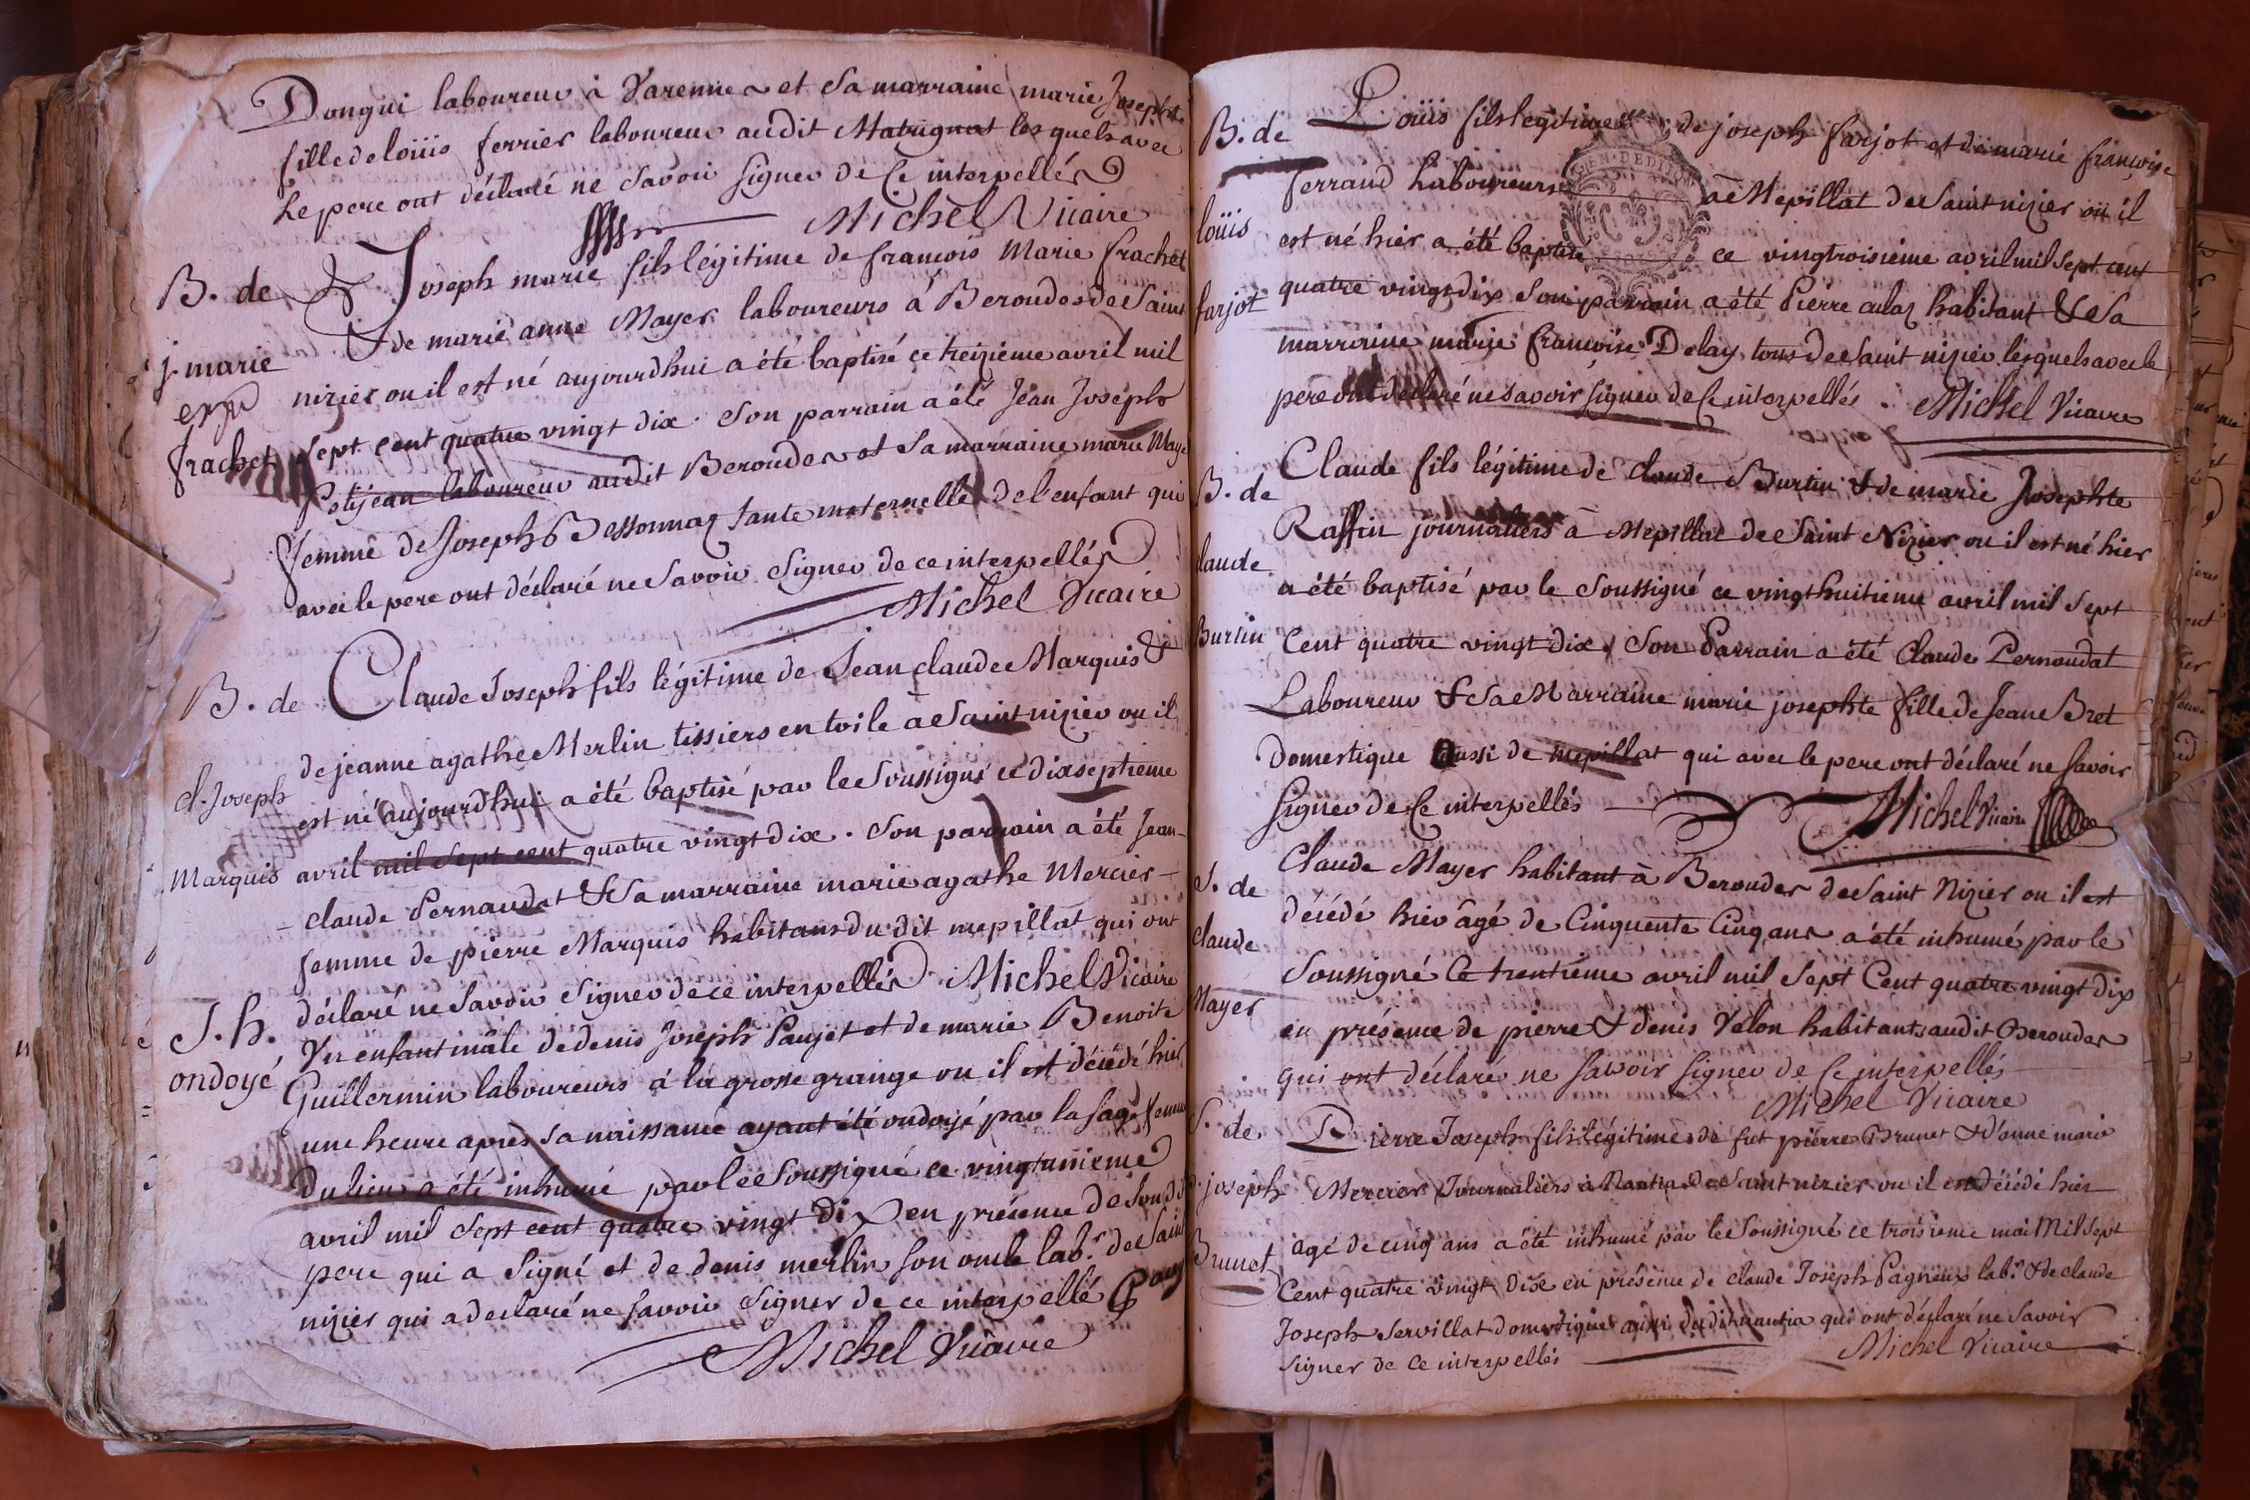 Donguì laboureur à Varenne et sa marraine marie Josephte
fille de loüis ferrier laboureur audit Matrignat lesquels avec
Le pere ont déclaré ne savoir signer de Ce interpellés
Michel Vicaire
B. de
j. marie
frachet
Joseph marie fils légitime de francois Marie frachet
& de marie anne Mayer laboureurs à Beroudes de Saint
nizier ou il est né aujourdhui a été baptisé ce treizieme avril mil
sept cent quatre vingt dix. Son parrain a été Jean Joseph
petitjean laboureur audit Beroudes et sa marraine marie Maye
femme de Joseph Bessonnaz tante maternelle de l'enfant qui
avec le pere ont déclaré ne savoir signer de ce interpellés
Michel Vicaire
B. de
cl. Joseph
Marquis
Claude Joseph fils légitime de Jean claude Marquis &
de jeanne agathe Merlin tissiers en toile a Saint nizier ou il
est né aujourdhui a été baptisé par le Soussigné ce dixseptieme
avril mil sept cent quatre vingt dix. Son parrain a été Jean-
claude Pernaudat & sa marraine marie agathe Mercier-
femme de pierre Marquis habitans du dit mepillat qui ont
déclaré ne savoir signer de ce interpellés. Michel Vicaire
J. h.
ondoyé
Vn enfant mâle de denis Joseph Paujet et de marie Benoite
Guillermin laboureurs à la grosse grange ou il est décédé hier
une heure après sa naissance ayant été ondoyé par la sage femme
du lieu a été inhumé par le Soussigné ce vingtunieme
avril mil sept cent quatre vingt dix en présence de son dit
pere qui a signé et de denis merlin son oncle lab.r de Saint
nizier qui a déclaré ne savoir signer de ce interpellé
Michel Vicaire
B. de
loüis
farjot
Loüis fils légitime de joseph farjot et de marie françoise
ferrand Laboureurs à Mepillat de Saint nizier oú il
est né hier a été baptisé ce vingtroisieme avril mil sept cent
quatre vingt dix Son parrain a été Pierre culaz habitant & sa
marraine marie francoise Delay tous de Saint nizier lesquels avec le
pere ont déclaré ne savoir signer de Ce interpellés. Michel Vicaire
B. de
laude
Burtin
Claude fils légitime de claude Burtin & de marie Josephte
Raffin journaliers à Mepillat de Saint Nizier ou il est né hier
a été baptisé par le Soussigné ce vingthuitieme avril mil sept
Cent quatre vingt dix. Son Parrain a été Claude Pernoudat
Laboureur & sa Marraine marie josephte fille de Jean Bret
Domestique aussi de mepillat qui avec le pere ont déclaré ne savoir
signer de Ce interpellés Michel Vicaire
S. de
claude
Mayer
Claude Mayer habitant à Beroudes de Saint Nizier ou il est
décédé hier âgé de Cinquente Cinq ans a été inhumé par le
Soussigné Ce trentieme avril mil sept Cent quatre vingt dix
en présence de pierre & denis Velon habitants audit Beroudes
qui ont déclaré ne savoir signer de Ce interpellés
Michel Vicaire
S. de
joseph
Brunet
Pierre Joseph fils légitime de fut pierre Brunet & d'anne marie
Mercier Journaliers à Nantia de Saint nizier ou il est décédé hier
agé de cinq ans a été inhumé par le Soussigné ce troisieme mai Mil sept
Cent quatre vingt Dix en présence de claude Joseph Pagneux lab.r & de claude
Joseph Servillat domestique aussi dudit nantia qui ont déclaré ne savoir
signer de ce interpellés Michel Vicaire